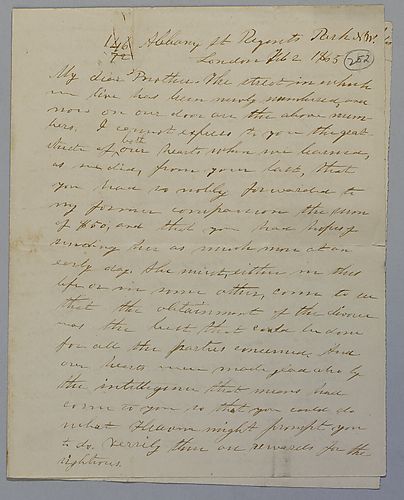 146 Albany St Regents Park N.W.
72
London Feb 2 1865 252
My dear Brother. The street in which
we live has been newly numbered, and
now on our door are the above num-
bers. I cannot express to you the grat-
itude of both our hearts when we learned,
as we did, from your last, that
you had so nobly forwarded to
my former companion the sum
of $50, and that you had hopes of
sending her as much more at an
early day. She must, either in this
life or in some other, come to see
that the obtainment of the divorce
was the best that could be done
for all the parties concerned. And
our hearts were made glad also by
the intelligence that means had
come to you so that you could do
what Heaven might prompt you
to do. Verily there are rewards for the
righteous.